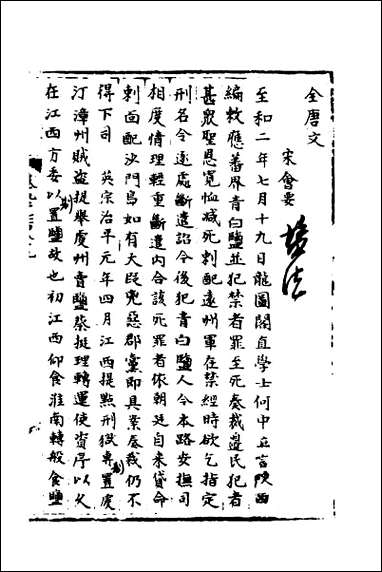 全唐文
宋會要
鹽法
至和二年七月十九日龍圖閣直學士何中立言陝西
編敕應蕃界青白鹽並犯禁者罪至死奏裁邊民犯者
甚衆聖恩寬恤減死刺配遠州軍在禁經時欲乞指定
刑名令逐處斷遣詔今後犯青白鹽人令本路安撫司
相度情理輕重斷遣内合該死罪者依朝廷自來貸命
刺面配沙門島如有大段兇惡郡黨即具案奏裁仍不
得下司 英宗治平元年四月江西提點刑獄專置虔
汀漳州賊盜提舉虔州賣鹽蔡挺理轉運使資序以久
在江西方委以置鹽故也初江西仰食淮南轉般食鹽